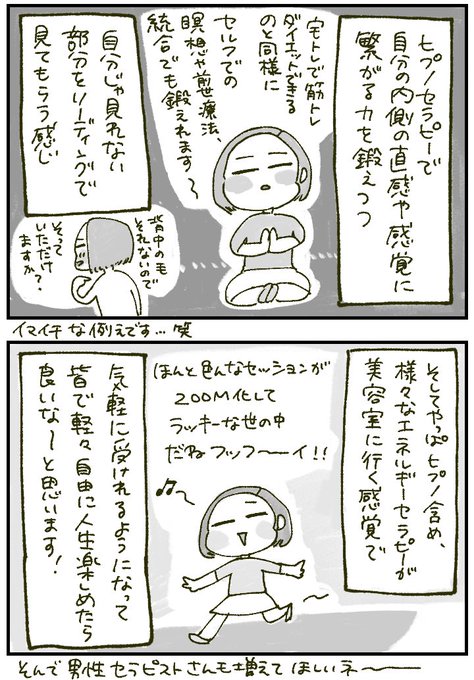 ヒプノセラピーで
自分の内側の直感や感覚に
繋がる力を鍛えつつ
宅トレで筋トレ
ダイエットできる
のと同様に
セルフでの
瞑想や前世療法、
統合でも鍛えれます〜
自分じゃ見れない
部分をリーディングで
見てもらう感じ
背中の毛
それないので
そって
いただけ
ますか?
イマイチな例えです…笑
そしてやっぱヒプノ含め、
様々なエネルギーセラピーが
美容室に行く感覚で
ほんと色んなセッションが
ZOOM化して
ラッキーな世の中
だねフッフ〜ーイ!!
気軽に受けれるようになって
皆で軽々自由に人生楽しめたら
良いな〜と思います!
そんで男性セラピストさんも増えてほしいネ〜